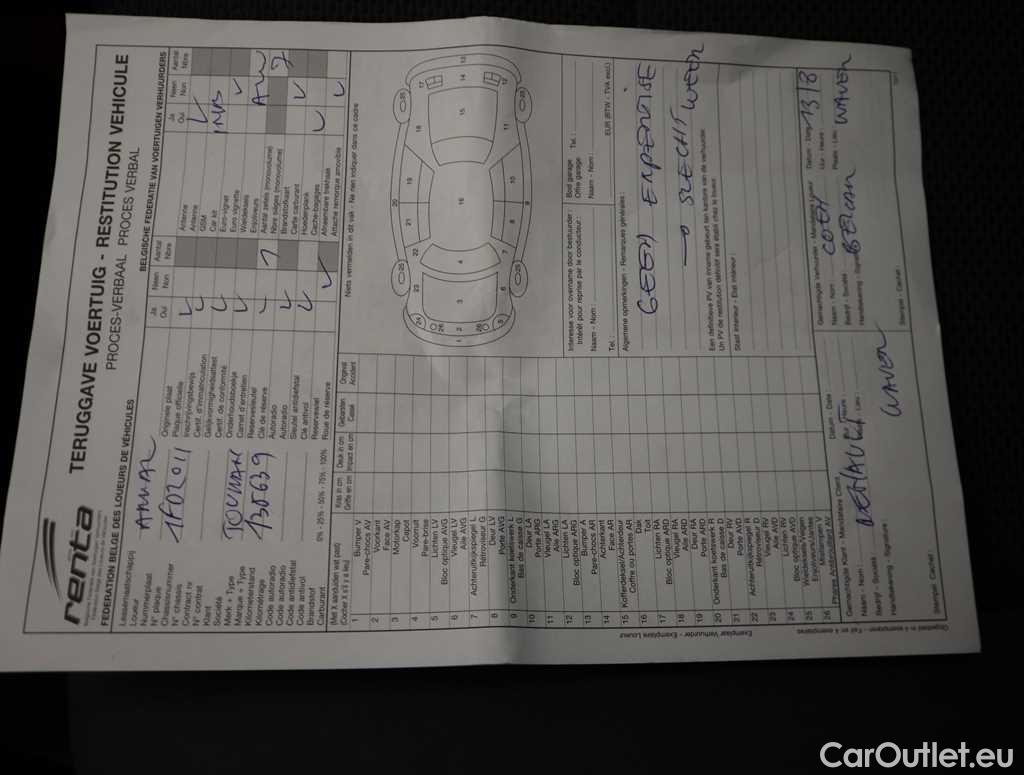 renta
FEDERATION BELGE DES LOUEURS DE VÉHICULES
TERUGGAVE VOERTUIG - RESTITUTION VEHICULE
PROCES-VERBAAL PROCES VERBAL
BELGISCHE FEDERATIE VAN VOERTUIGEN VERHUURDERS
Leasemaatschappij
Loueur
Nummerplaat
N° plaque
1FD2011
Chassisnummer
N° chassis
Contract nr
N° contrat
Klant
Société
Merk + Type
Marque + Type
TOURAN
Kilometerstand
Kilométrage
135639
Code autoradio
Code autoradio
Code antidiefstal
Code antivol
Brandstof
Carburant
0% - 25% - 50% - 75% - 100%
Ja
Oui
Neen
Non
Aantal
Nbre
Originele plaat
Plaque officielle
Inschrijvingsbewijs
Certif. d'immatriculation
Gelijkvormigheidsattest
Certif. de conformité
Onderhoudsboekje
Carnet d'entretien
Reservesleutel
Clé de réserve
Autoradio
Autoradio
Sleutel antidiefstal
Clé antivol
Reservewiel
Roue de réserve
Ja
Oui
Neen
Non
Aantal
Nbre
Antenne
Antenne
GSM
Car kit
Euro-vignet
Euro vignette
Wieldeksels
Enjoliveurs
Aantal zetels (monovolume)
Nbre sièges (monovolume)
7
Brandstofkaart
Carte carburant
Hoedenplank
Cache-bagages
Afneembare trekhaak
Attache remorque amovible
(Met X aanduiden wat past)
(Cocher X s'il y a lieu)
Kras in cm
Griffe en cm
Deuk in cm
Impact en cm
Gebarsten
Cassé
Original
Accident
Niets vermelden in dit vak - Ne rien indiquer dans ce cadre
1 Bumper V
Pare-chocs AV
2 Voorkant
Face AV
3 Motorkap
Capot
4 Voorruit
Pare-brise
5 Lichten LV
Bloc optique AVG
6 Vleugel LV
Aile AVG
7 Achteruitkijkspiegel L
Rétroviseur G
8 Deur LV
Porte AVG
9 Onderkant koetswerk L
Bas de caisse G
10 Deur LA
Porte ARG
11 Vleugel LA
Aile ARG
12 Lichten LA
Bloc optique ARG
13 Bumper A
Pare-chocs AR
14 Achterkant
Face AR
15 Kofferdeksel/Achterdeur
Coffre ou portes AR
16 Dak
Toit
17 Lichten RA
18 Vleugel RA
Aile ARD
19 Deur RA
Porte ARD
20 Onderkant koetswerk R
Bas de caisse D
21 Deur RV
Porte AVD
22 Achteruitkijkspiegel R
Rétroviseur D
23 Vleugel RV
Aile AVD
24 Lichten RV
Bloc optique AVD
25 Wieldeksels/Velgen
Enjoliveurs/Jantes
26 Mistlampen V
Phares Antibrouillard AV
Interesse voor overname door bestuurder
Intérêt pour reprise par le conducteur :
Naam - Nom :
Tel. :
Bod garage
Offre garage
Tel. :
Naam - Nom :
EUR (BTW - TVA excl.)
Algemene opmerkingen - Remarques générales :
GEEN EXPERTISE
→ SLECHT WEER
Een definitieve PV van inname gebeurt ten kantore van de verhuurder.
Un PV de restitution définitif sera établi chez le loueur.
Staat interieur - Etat intérieur :
Gemachtigde Klant - Mandataire Client
Naam - Nom :
Datum - Date
Uur - Heure
Bedrijf - Société
Plaats - Lieu :
WAVER
Handtekening - Signature :
Stempel - Cachet :
Gemachtigde Verhuurder - Mandataire Loueur
Naam - Nom :
Datum - Date
13/8
Uur - Heure :
Bedrijf - Société
Plaats - Lieu :
WAVER
Handtekening - Signature
Stempel - Cachet :
Exemplaar Verhuurder - Exemplaire Loueur
Opgesteld in 4 exemplaren - Fait en 4 exemplaires
CarOutlet.eu